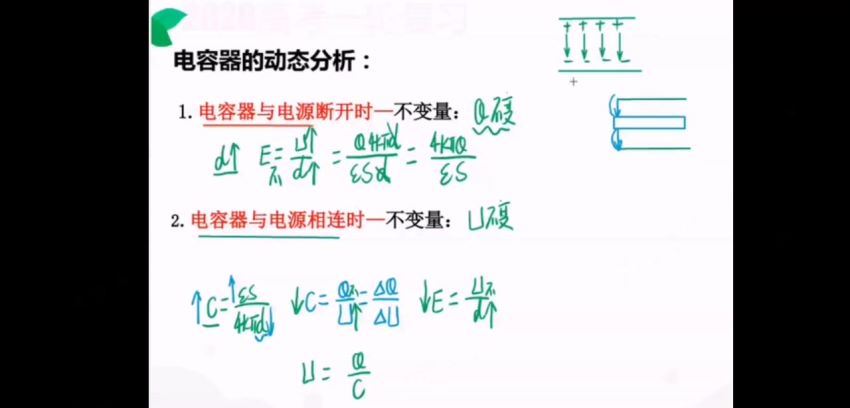 2020高考一轮复习
电容器的动态分析：
1. 电容器与电源断开时—不变量：Q不变
d↑ E不=U↑/d↑=Q4kπd/εSd=4kπQ/εS
2. 电容器与电源相连时—不变量：U不变
↑C=↑εS/4kπd↓ ↓C=Q不/U↑=ΔQ/ΔU ↓E=U不/d↑
U=Q/C